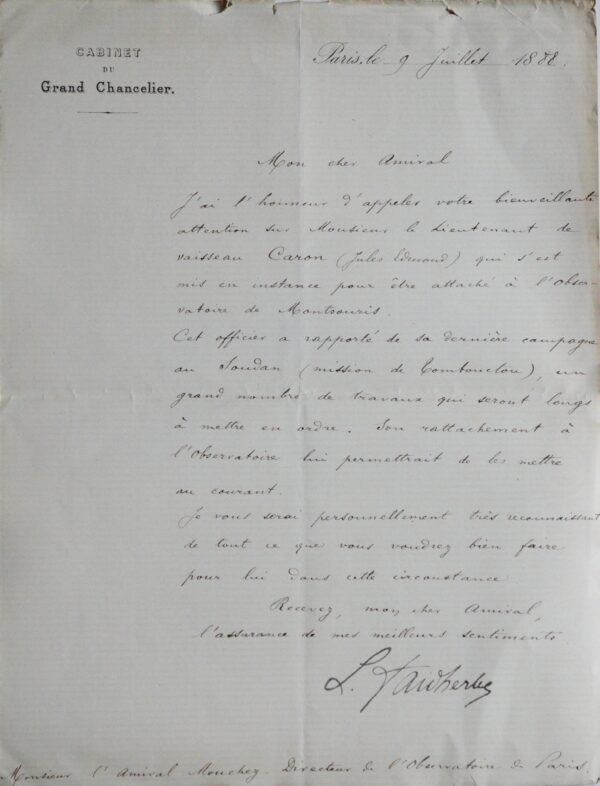 CABINET
DU
Grand Chancelier.
Paris, le 9 Juillet 1888.
Mon cher Amiral
J'ai l'honneur d'appeler votre bienveillante
attention sur Monsieur le Lieutenant de
vaisseau Caron (Jules Edmond) qui s'est
mis en instance pour être attaché à l'Obser-
vatoire de Montsouris.
Cet officier a rapporté de sa dernière campagne
au Soudan (mission de Tombouctou), un
grand nombre de travaux qui seront longs
à mettre en ordre. Son rattachement à
l'Observatoire lui permettrait de les mettre
au courant.
Je vous serai personnellement très reconnaissant
de tout ce que vous voudrez bien faire
pour lui dans cette circonstance
Recevez, mon cher Amiral,
l'assurance de mes meilleurs sentiments
L. Faidherbe
Monsieur l'Amiral Mouchez. Directeur de l'Observatoire de Paris.